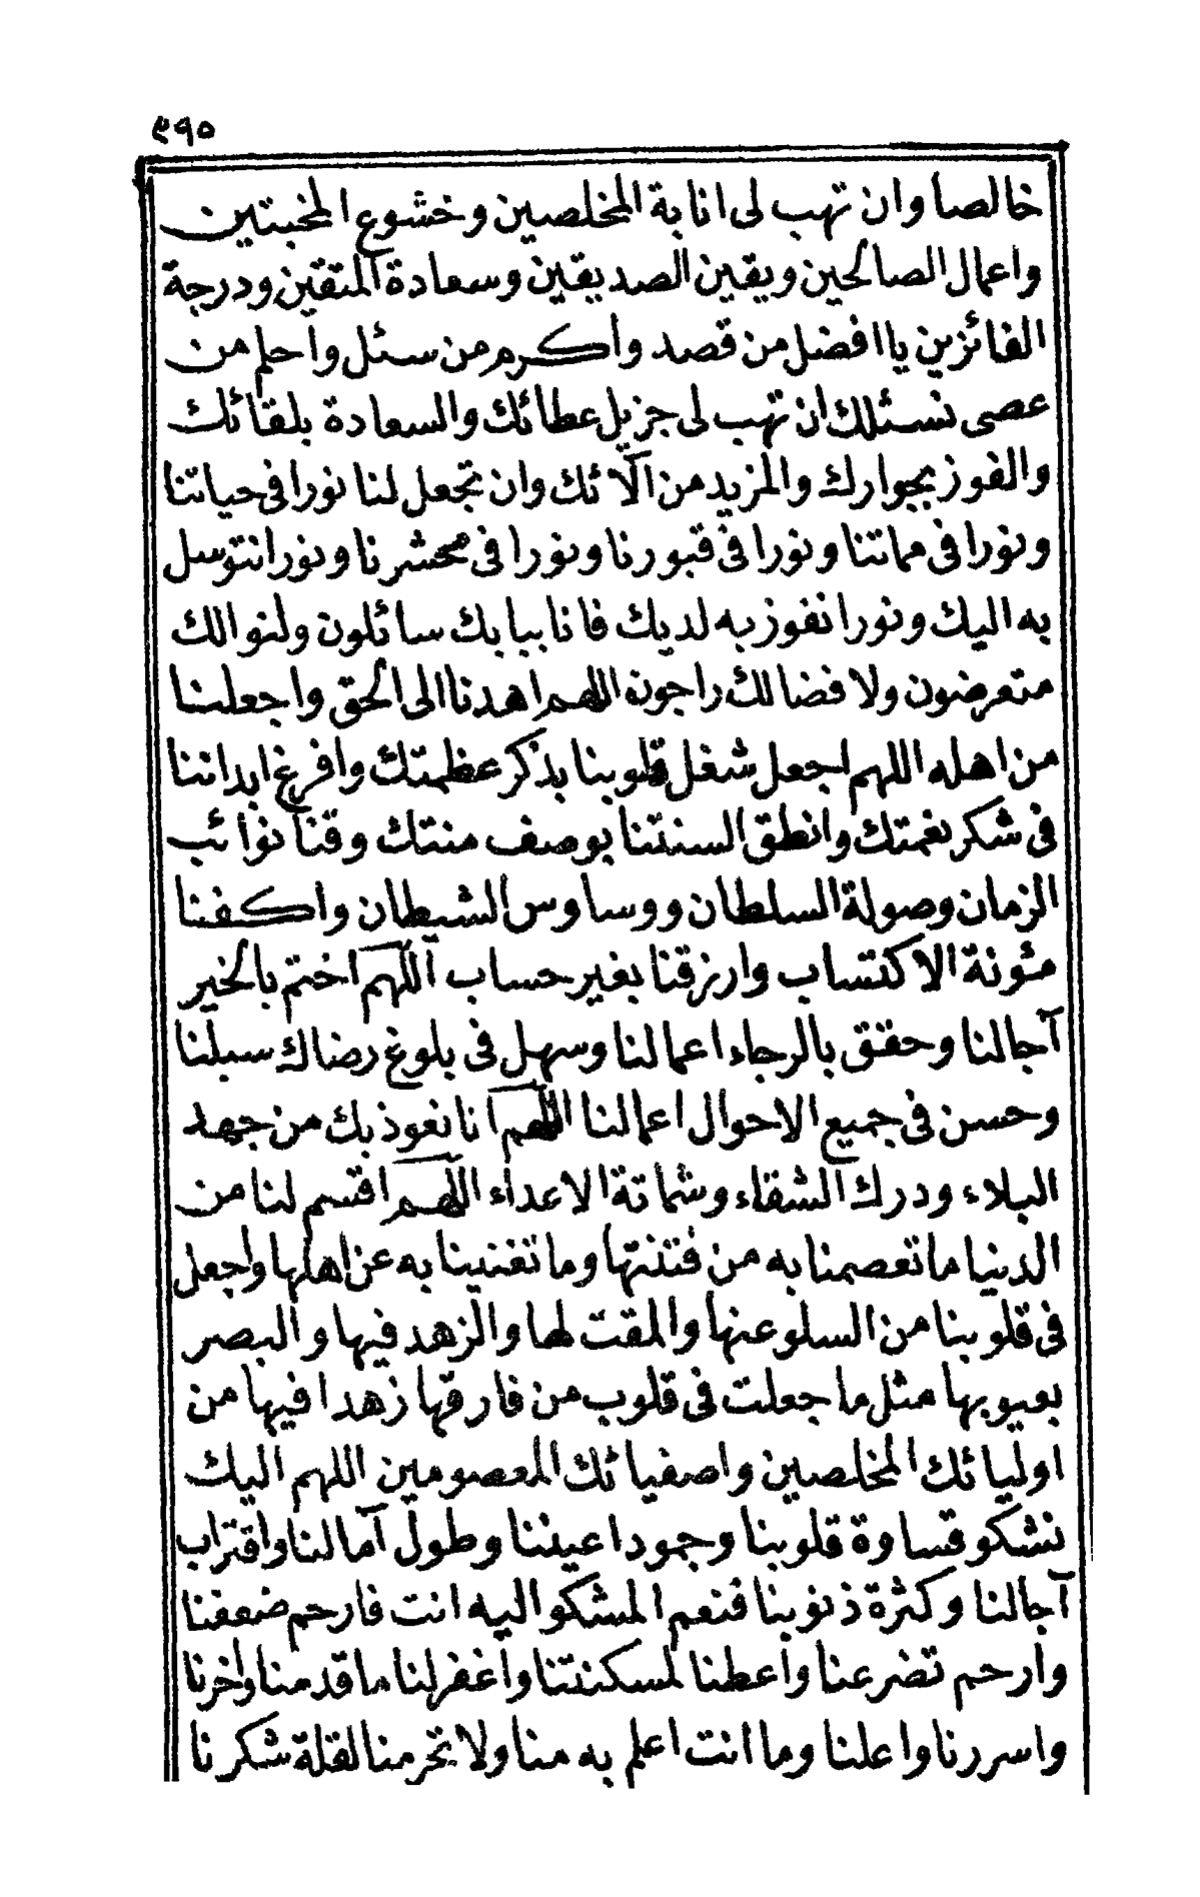 ٤٩٥
خالصا وان تهب لى انابة المخلصين وخشوع المخبتين
واعمال الصالحين ويقين الصديقين وسعادة المتقين ودرجة
الفائزين يا افضل من قصد واكرم من سئل واحلم من
عصى نسئلك ان تهب لى جزيل عطائك والسعادة بلقائك
والفوز بجوارك والمزيد من آلائك وان تجعل لنا نورا فى حياتنا
ونورا فى مماتنا ونورا فى قبورنا ونورا فى محشرنا ونورا نتوسل
به اليك ونورا نفوز به لديك فانا ببابك سائلون ولنوالك
متعرضون ولافضالك راجون اللهم اهدنا الى الحق واجعلنا
من اهله اللهم اجعل شغل قلوبنا بذكر عظمتك وافرغ ابداننا
فى شكر نعمتك وانطق السنتنا بوصف منتك وقنا نوائب
الزمان وصولة السلطان ووساوس الشيطان واكفنا
مئونة الاكتساب وارزقنا بغير حساب اللهم اختم بالخير
آجالنا وحقق بالرجاء اعمالنا وسهل فى بلوغ رضاك سبلنا
وحسن فى جميع الاحوال اعمالنا اللهم انا نعوذ بك من جهد
البلاء ودرك الشقاء وشماتة الاعداء اللهم اقسم لنا من
الدنيا ما تعصمنا به من فتنتها وما تغنينا به عن اهلها واجعل
فى قلوبنا من السلو عنها والمقت لها والزهد فيها والبصر
بعيوبها مثل ما جعلت فى قلوب من فارقها زهدا فيها من
اوليائك المخلصين واصفيائك المعصومين اللهم اليك
نشكو قساوة قلوبنا وجمود اعيننا وطول آمالنا واقتراب
آجالنا وكثرة ذنوبنا فنعم المشكو اليه انت فارحم ضعفنا
وارحم تضرعنا واعطنا لمسكنتنا واغفر لنا ما قدمنا واخرنا
واسررنا واعلنا وما انت اعلم به منا ولا تحرمنا لقلة شكرنا